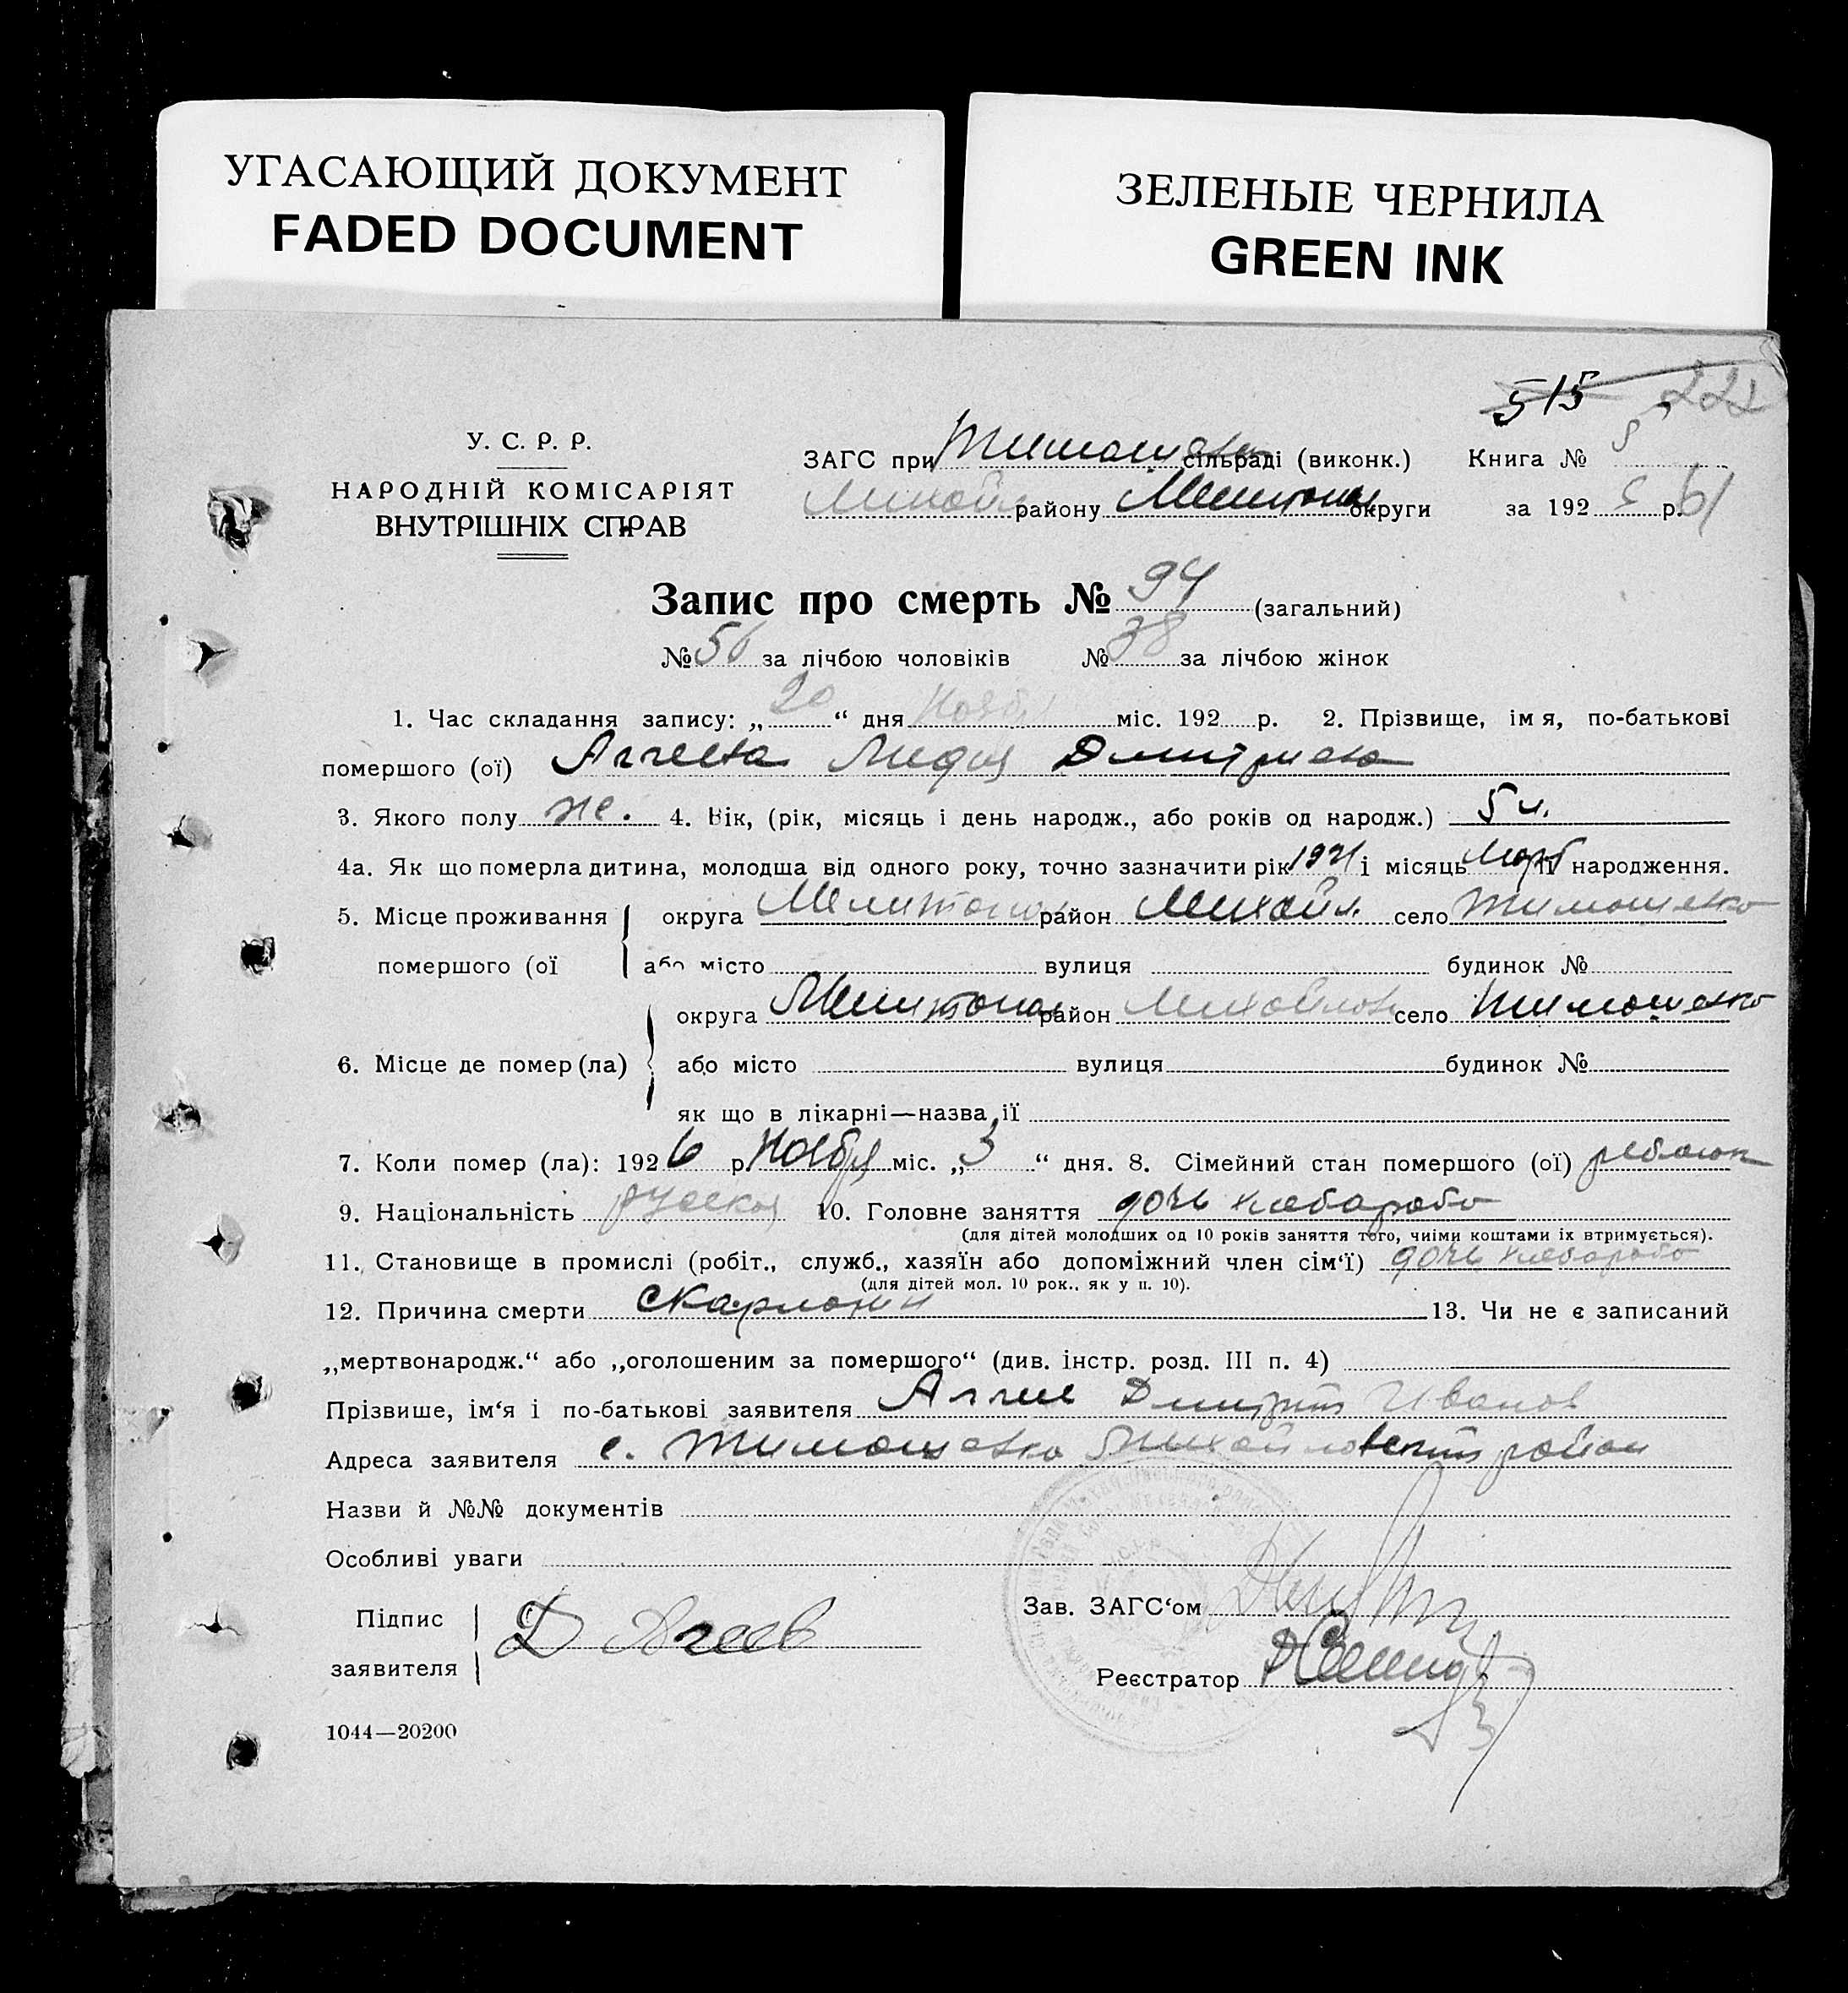 УГАСАЮЩИЙ ДОКУМЕНТ
FADED DOCUMENT
ЗЕЛЕНЫЕ ЧЕРНИЛА
GREEN INK
515
У. С. Р. Р.
НАРОДНІЙ КОМІСАРІЯТ
ВНУТРІШНІХ СПРАВ
ЗАГС при Тимошевк сільраді (виконк.) Книга № 5
Михайл району Мелитопол округи за 192 р. 61
Запис про смерть № 94 (загальний)
№ 56 за лічбою чоловіків № 38 за лічбою жінок
1. Час складання запису: „ 20 “ дня Ноябр міс. 192 р. 2. Прізвище, імя, по-батькові
помершого (ої) Аггеева Лидия Дмитриева
3. Якого полу же. 4. Вік, (рік, місяць і день народж., або років од народж.) 5 л.
4а. Як що померла дитина, молодша від одного року, точно зазначити рік 1921 і місяць Март її народження.
5. Місце проживання округа Мелитопол район Михайл. село Тимошевко
помершого (ої або місто вулиця будинок №
округа Мелитопол район Михайловс село Тимошевко
6. Місце де помер (ла) або місто вулиця будинок №
як що в лікарні—назва її
7. Коли помер (ла): 1926 р Ноября міс. „ 3 “ дня. 8. Сімейний стан помершого (ої) ребьонк
9. Національність руская 10. Головне заняття дочь хлебаробо
(для дітей молодших од 10 років заняття того, чиїми коштами їх втримується).
11. Становище в промислі (робіт., служб., хазяїн або допоміжний член сім‘ї) дочь хлебаробо
(для дітей мол. 10 рок., як у п. 10).
12. Причина смерти скарлотин 13. Чи не є записаний
„мертвонародж.“ або „оголошеним за помершого“ (див. інстр. розд. III п. 4)
Прізвище, ім‘я і по-батькові заявителя Аггеев Дмитрий Иванов
Адреса заявителя с. Тимошевко Михайловский район
Назви й №№ документів
Особливі уваги
Підпис
заявителя Д Агеев
Зав. ЗАГС‘ом
Реєстратор
1044—20200